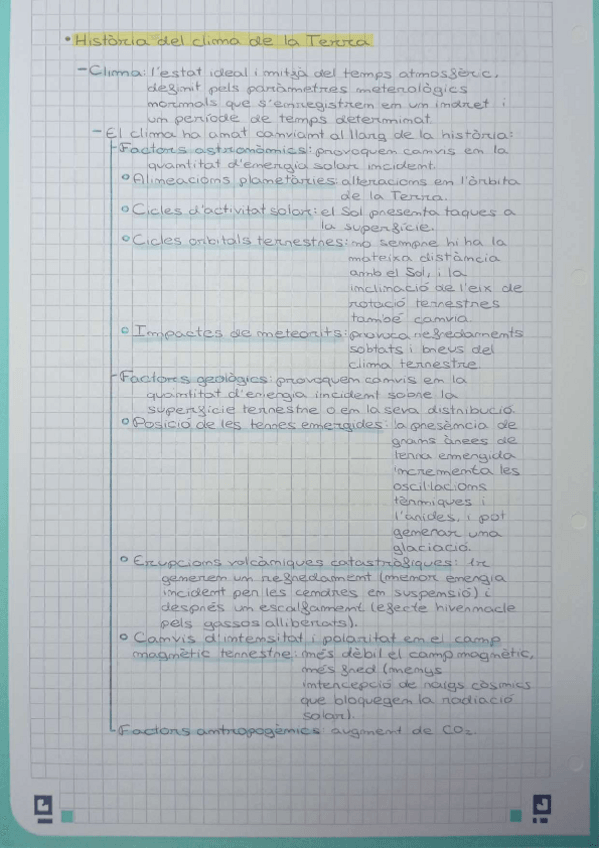 • Història del clima de la Terra
- Clima: l'estat ideal i mitjà del temps atmosfèric,
definit pels paràmetres meteralògics
normals que s'enregistren en un indret i
un període de temps determinat.
- El clima ha anat canviant al llarg de la història:
Factors astronòmics: provoquen canvis en la
quantitat d'energia solar incident.
Alineacions planetàries: alteracions en l'òrbita
de la Terra.
Cicles d'activitat solar: el Sol presenta taques a
la superfície.
Cicles orbitals terrestres: no sempre hi ha la
mateixa distància
amb el Sol, i la
inclinació de l'eix de
rotació terrestres
també canvia.
Impactes de meteorits: provoca refredaments
sobtats i breus del
clima terrestre
Factors geològics: provoquen canvis en la
quantitat d'energia incident sobre la
superfície terrestre o en la seva distribució.
Posició de les terres emergides: la presència de
grans àrees de
terra emergida
incrementa les
oscil·lacions
tèrmiques i
l'arides, i pot
generar una
glaciació.
Erupcions volcàniques catastròfiques: 1r
generen un refredament (menor energia
incident per les cendres en suspensió) i
després un escalfament (efecte hivernacle
pels gassos alliberats).
Canvis d'intensitat i polaritat en el camp
magnètic terrestre: més dèbil el camp magnètic,
més fred (menys
intercepció de raigs còsmics
que bloquegen la radiació
solar).
Factors antropogènics: augment de CO₂.